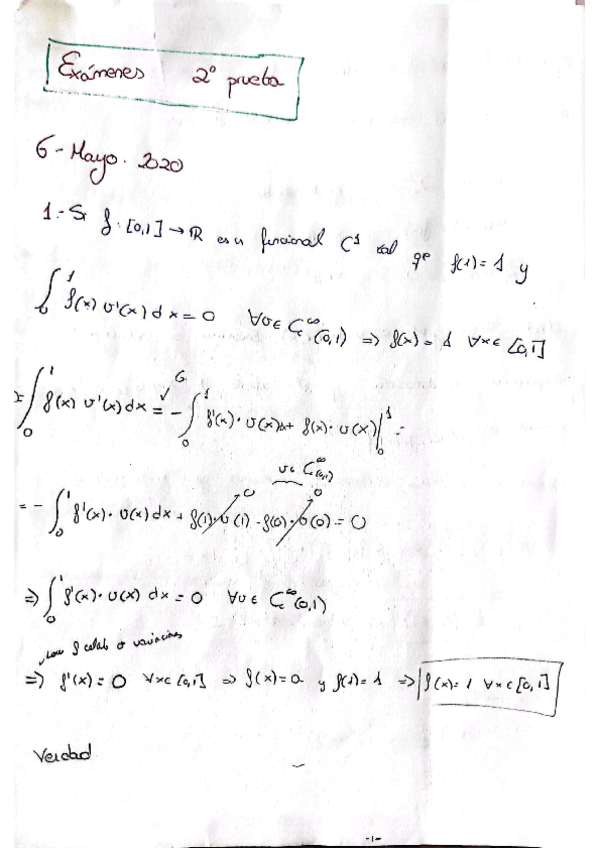 Exámenes 2º prueba
6-Mayo. 2020
1.- Si f: [0,1] → ℝ es a funcional C¹ tal qe f(1) = 1 y
∫₀¹ f(x) v'(x) dx = 0 ∀v∈ C_c^∞(0,1) ⇒ f(x) = 1 ∀x∈ [0,1]
∫₀¹ f(x) v'(x) dx = - ∫₀¹ f'(x)·v(x)dx + f(x)·v(x)|₀¹ =
v∈ C_c^∞(0,1)
= - ∫₀¹ f'(x)·v(x) dx + f(1)·v(1) - f(0)·v(0) = 0
⇒ ∫₀¹ f'(x)·v(x) dx = 0 ∀v∈ C_c^∞(0,1)
variaciones
⇒ f'(x) = 0 ∀x∈ [0,1] ⇒ f(x) = a y f(1) = 1 ⇒ f(x) = 1 ∀x∈ [0,1]
Verdad
-1-